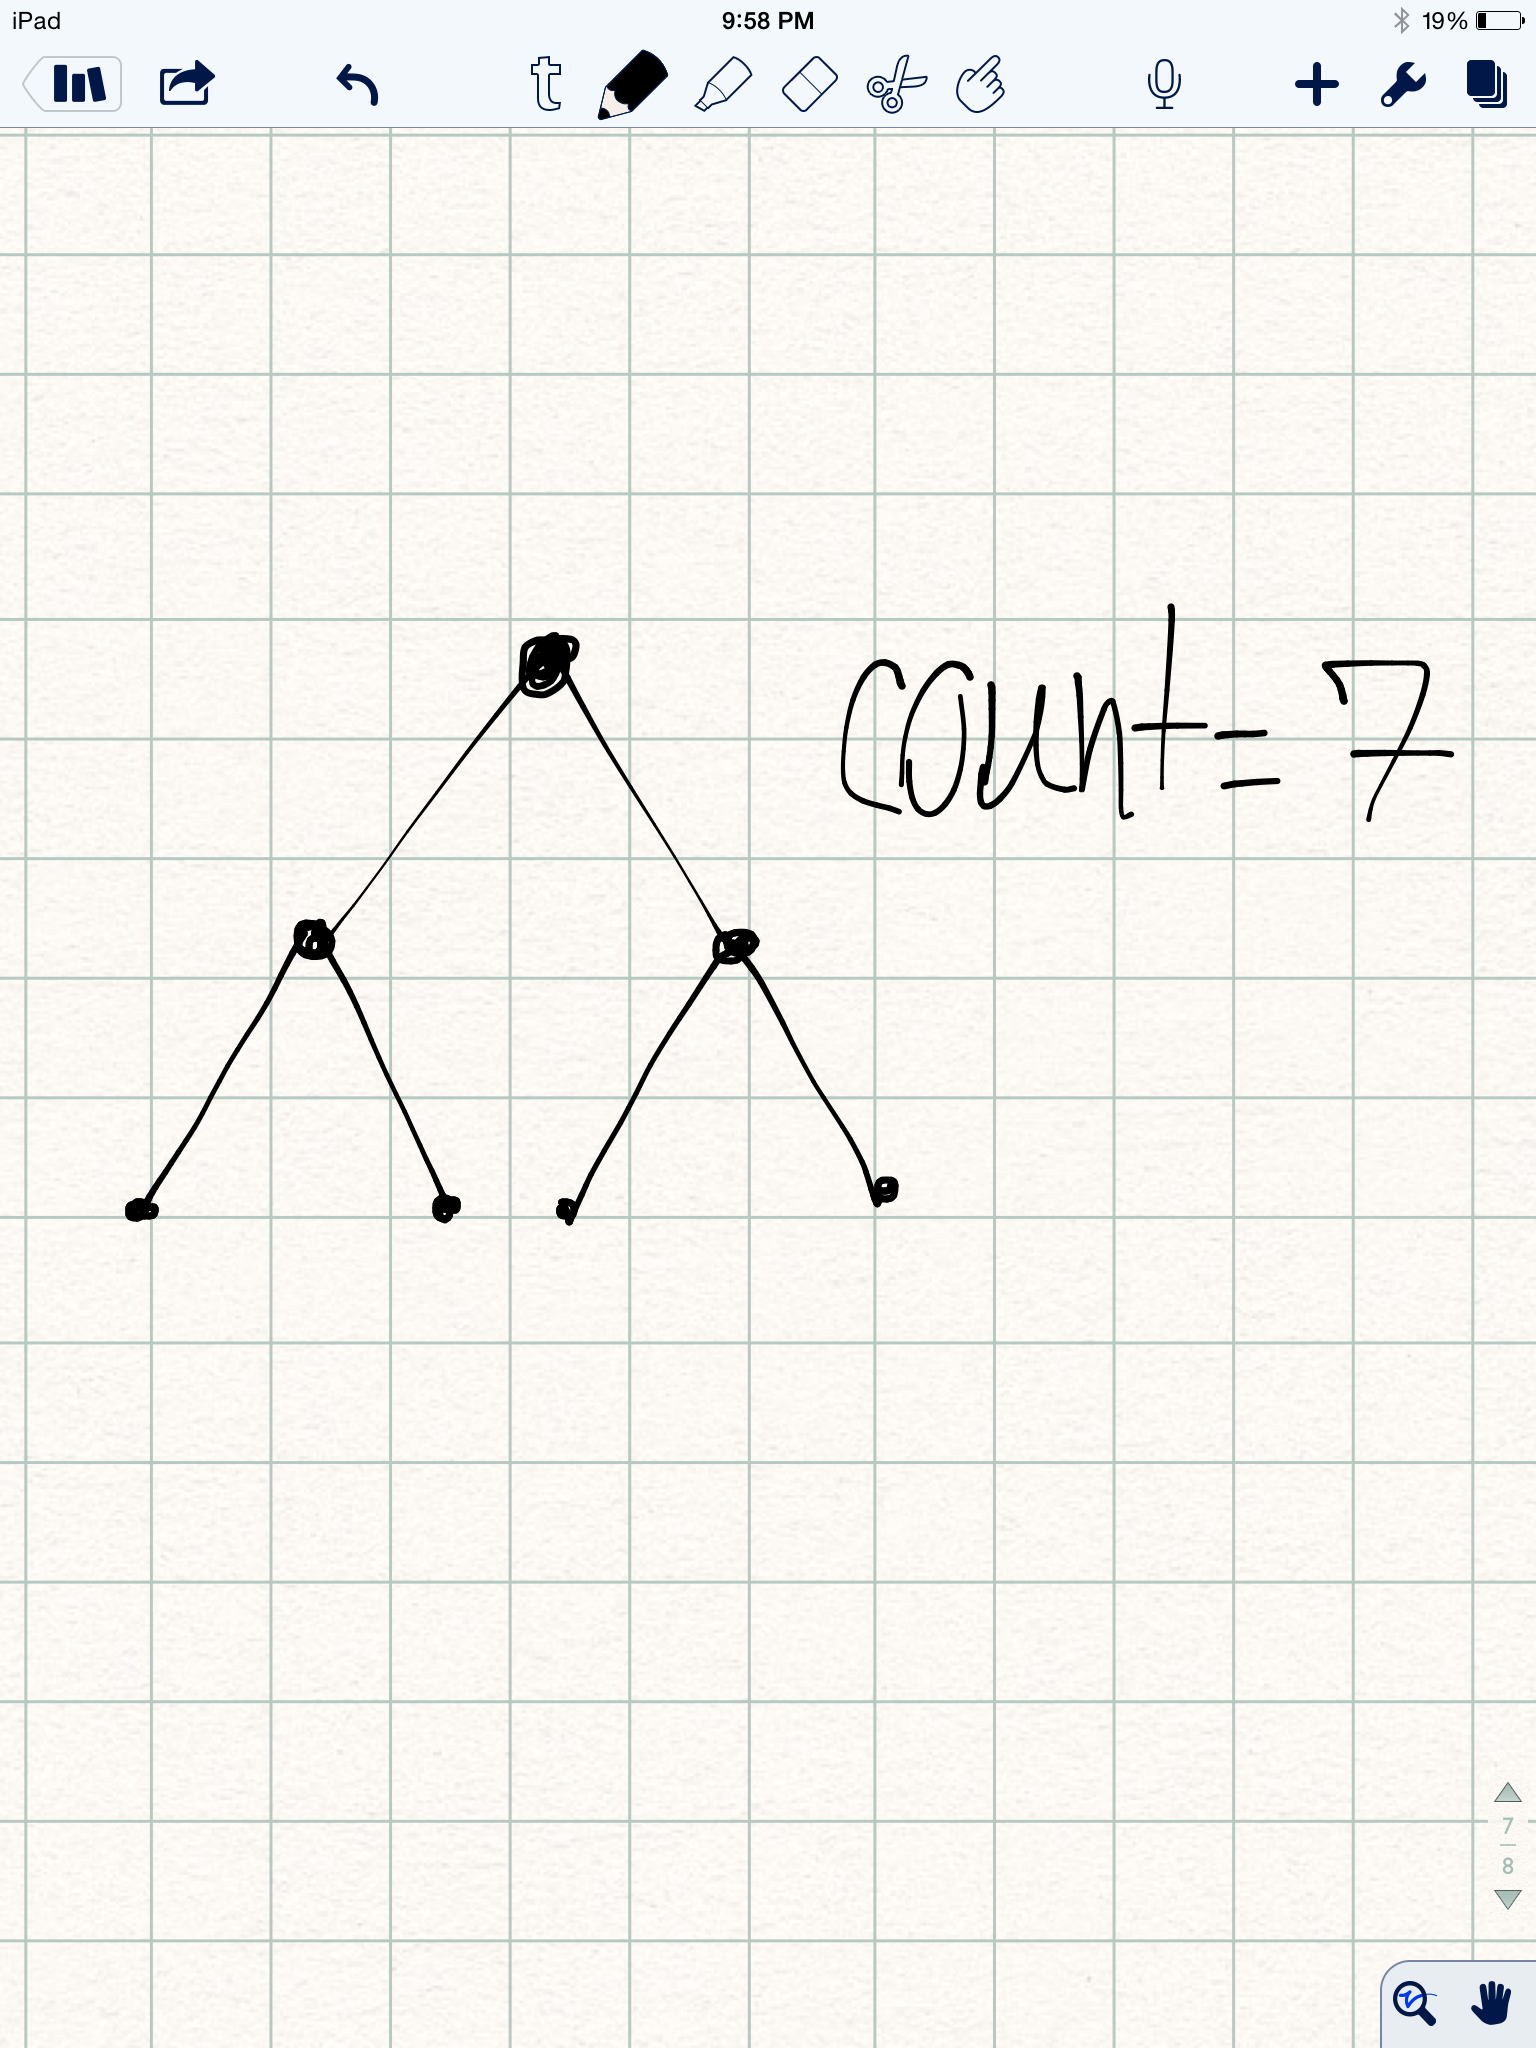 iPad 9:58 PM 19%
t
count = 7
7
8